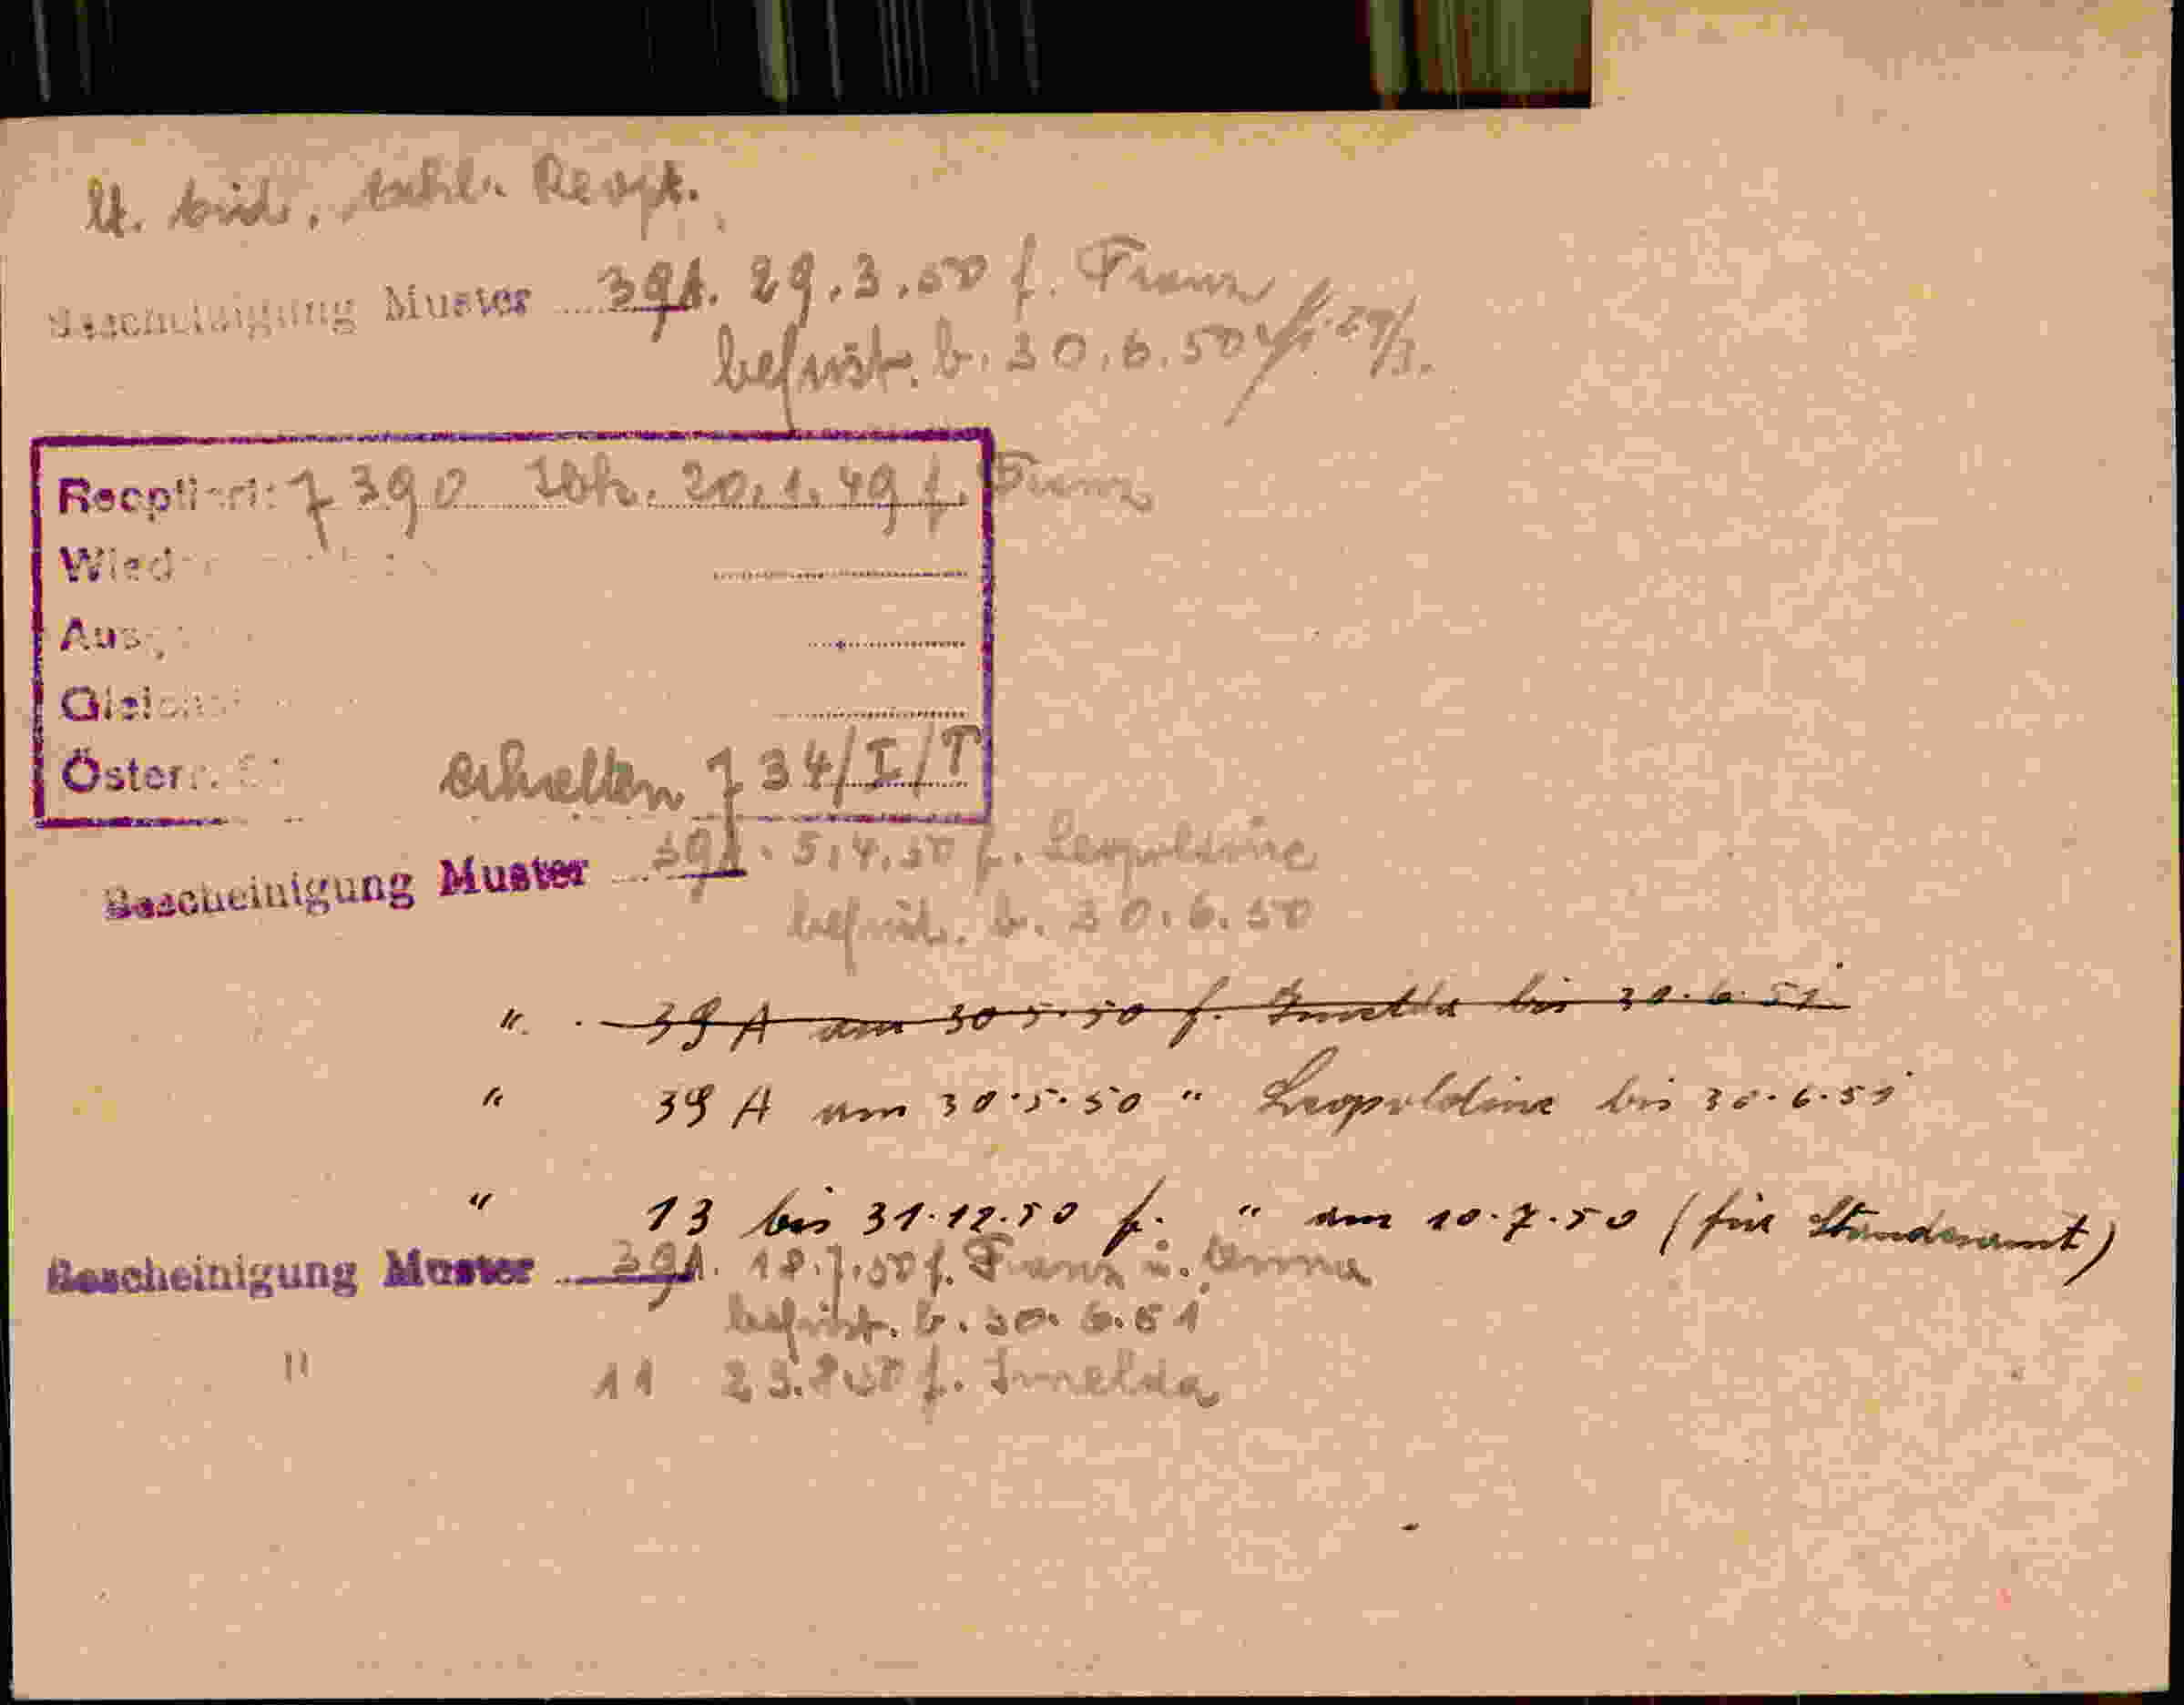 lt. Reopt.
Bescheinigung Muster 39A. 29.3.50 f. Franz
befrist. b. 30.6.50
Reoptiert: 7390 Ibk. 20.1.49 f. Franz
Österr. erhielten 734/I/T
Bescheinigung Muster 39A. 5.4.50 f. Leopoldine
befrist. b. 30.6.50
" 39 A am 30.5.50 f. Imelda bis 30.6.51
" 39 A am 30.5.50 " Leopoldine bis 30.6.51
" 13 bis 31.12.50 f. " am 10.7.50 (für Standesamt)
Bescheinigung Muster 39A. 18.7.50 f. Franz u. Anna
befrist. b. 30.6.51
" 11 23.8.50 f. Imelda